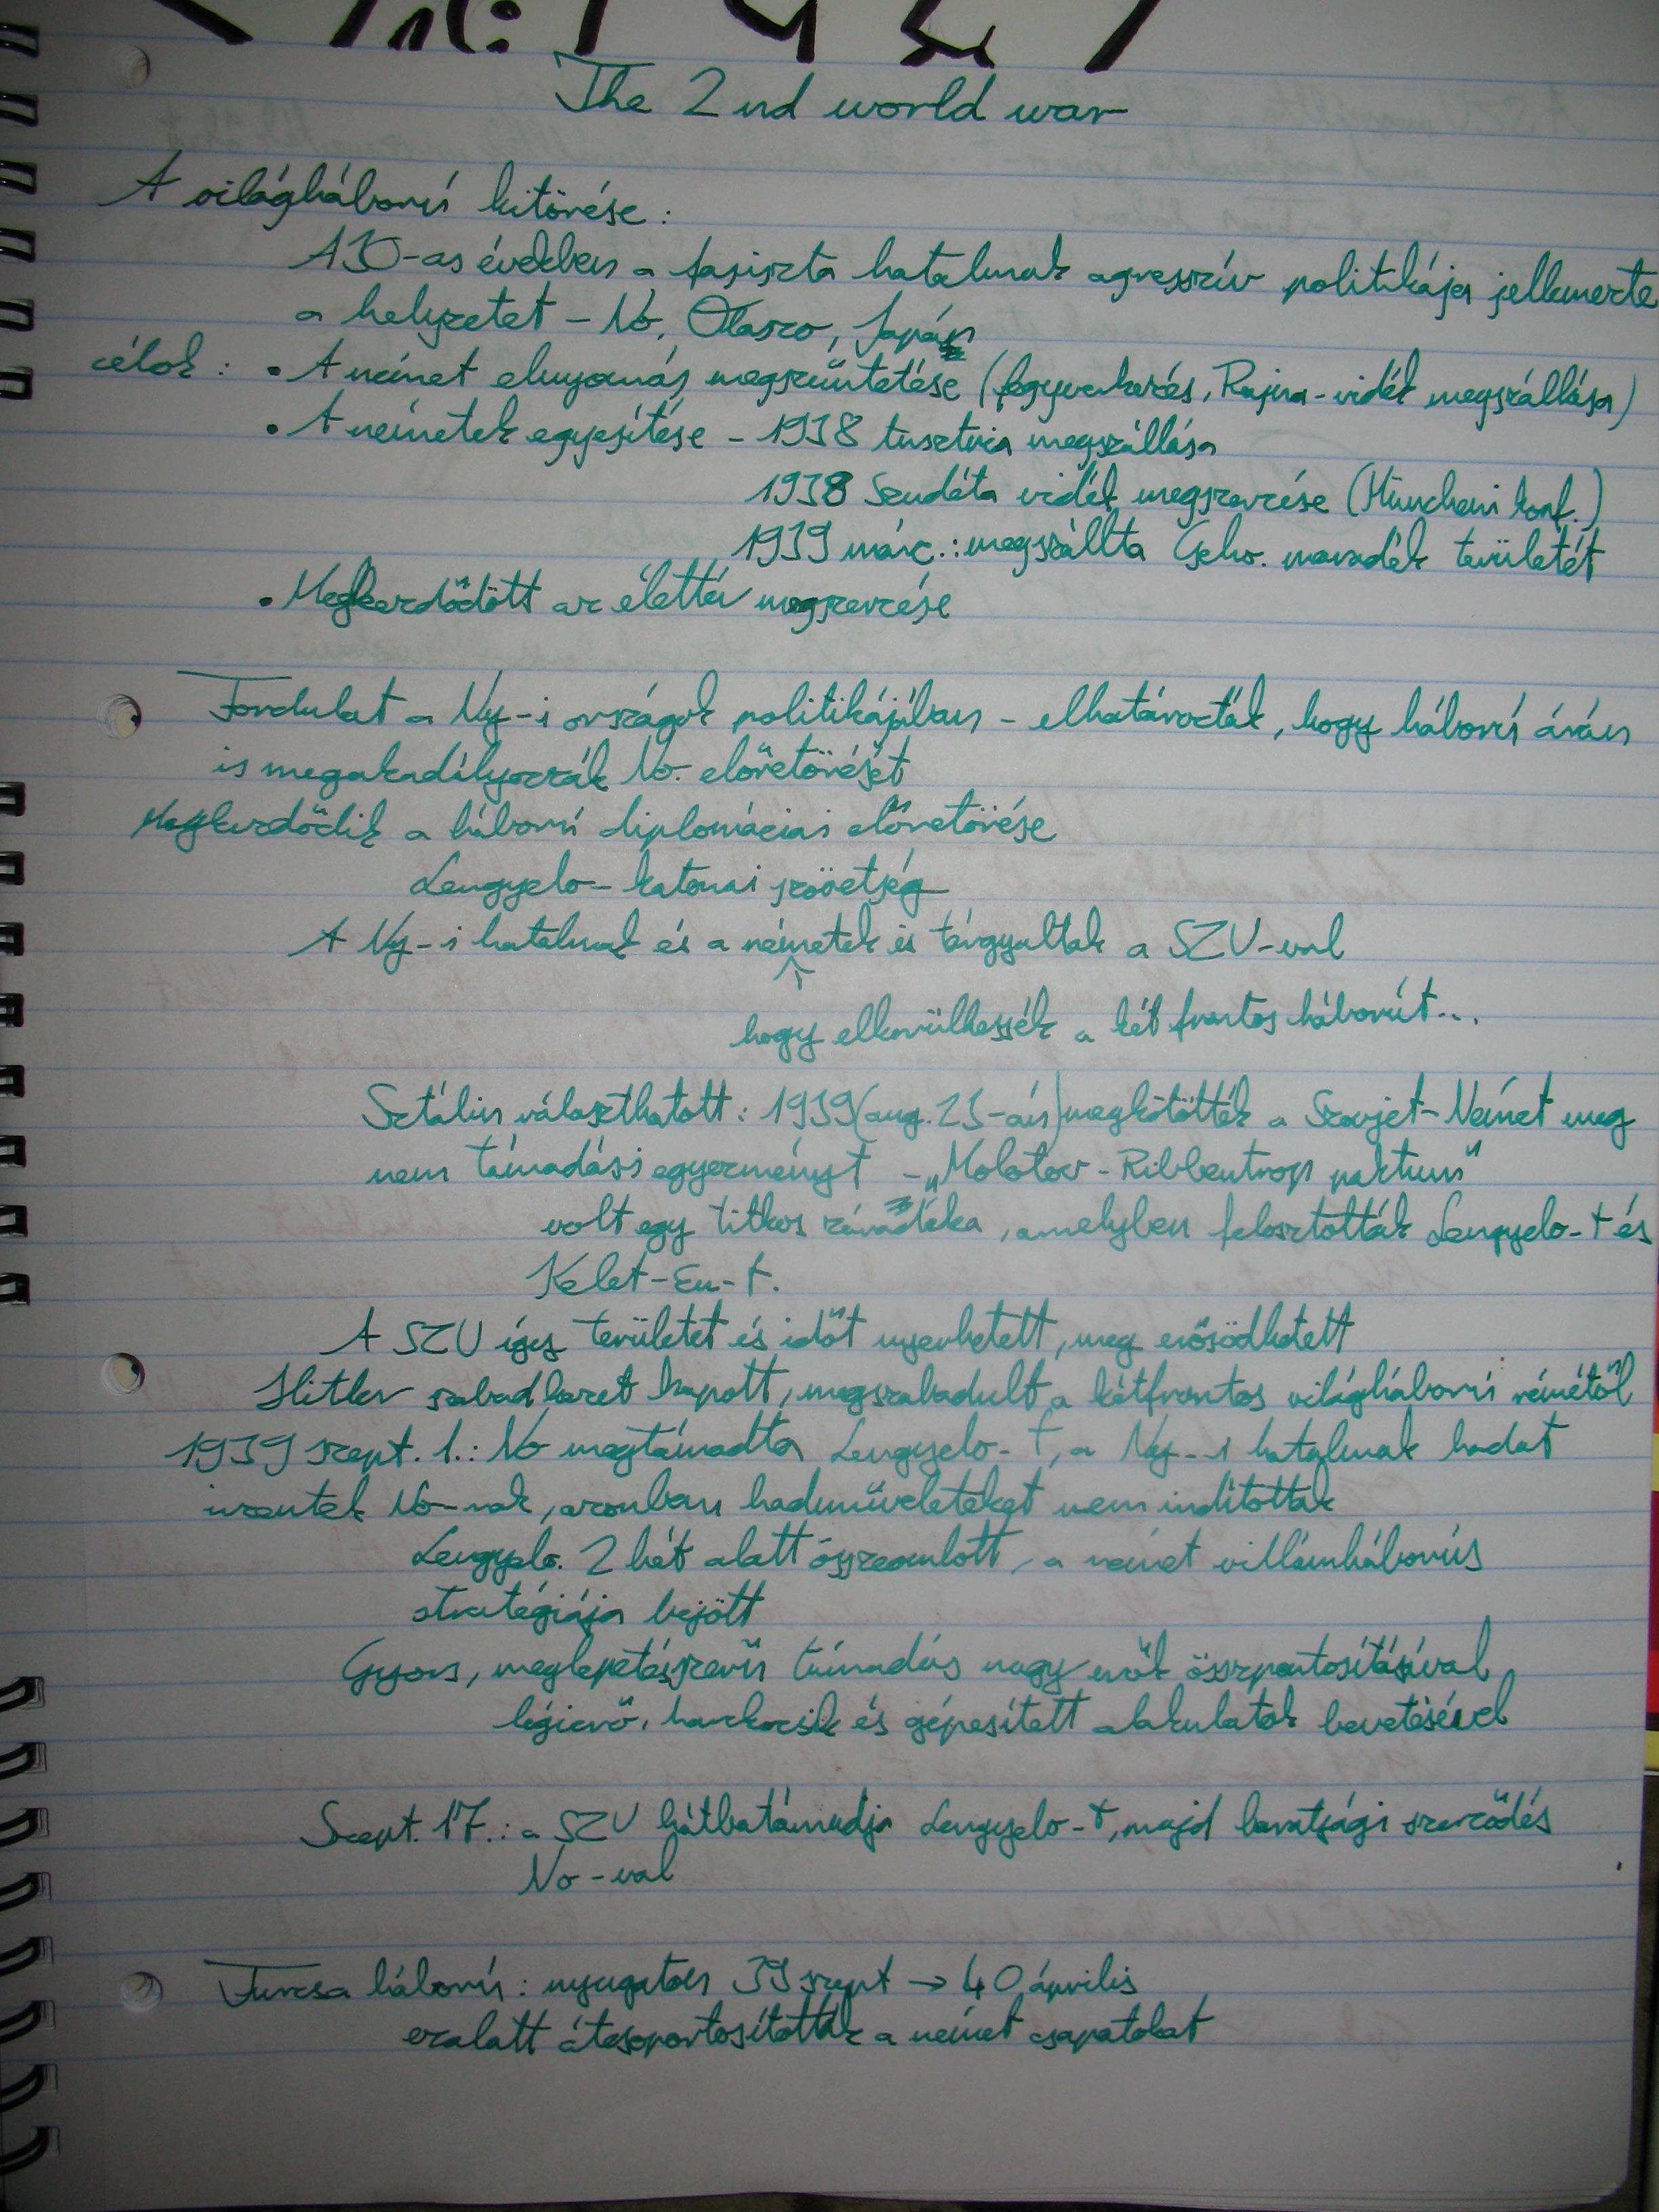 The 2nd world war
A világháború kitörése:
A 30-as években a fasiszta hatalmak agresszív politikája jellemezte
a helyzetet - No, Olaszo, Japán
célok: • A német elnyomás megszüntetése (fegyverkezés, Rajna-vidék megszállása)
• A németek egyesítése - 1938 Ausztria megszállása
1938 Szudéta vidék megszerzése (Müncheni konf.)
1939 márc.: megszállta Cseho. maradék területét
• Megkezdődött az élettér megszerzése
Fordulat a Ny-i országok politikájában - elhatározták, hogy háború árán
is megakadályozzák No. előretörését
Megkezdődik a háború diplomáciai előretörése
Lengyelo - katonai szövetség
A Ny-i hatalmak és a németek is tárgyaltak a SZU-val
hogy elkerülhessék a két frontos háborút...
Sztálin választhatott: 1939(aug. 23-án) megkötötték a Szovjet-Német meg
nem támadási egyezményt - „Molotov - Ribbentrop paktum"
volt egy titkos záradéka, amelyben felosztották Lengyelo-t és
Kelet-Eu-t.
A SZU így területet és időt nyerhetett, meg erősödhetett
Hitler szabad kezet kapott, megszabadult a kétfrontos világháború rémétől
1939 szept. 1.: No megtámadta Lengyelo-t, a Ny-i hatalmak hadat
üzentek No-nak, azonban hadműveleteket nem indítottak
Lengyelo. 2 hét alatt összeomlott, a német villámháborús
stratégiája bejött
Gyors, meglepetésszerű támadás nagy erők összpontosításával
légierő, harckocsik és gépesített alakulatok bevetésével
Szept. 17.: a SZU hátbatámadja Lengyelo-t, majd barátsági szerződés
No-val
Furcsa háború: nyugaton 39 szept → 40 április
ezalatt átcsoportosították a német csapatokat